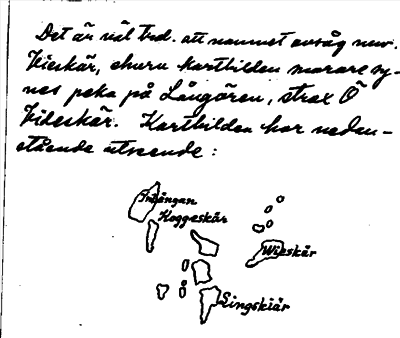 Det är väl tvd. att namnet avsåg nuv.
Vieskär, churu kartbilden snarare sy-
nes peka på Långören, strax Ö
Videskär. Kartbilden har nedan-
stående utseende:
Koggeskär
Wieskär
Singskiär